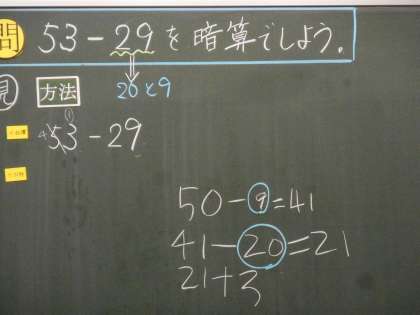 問 53-29を暗算でしよう。
20と9
見 方法
53-29
50-9=41
41-20=21
21+3